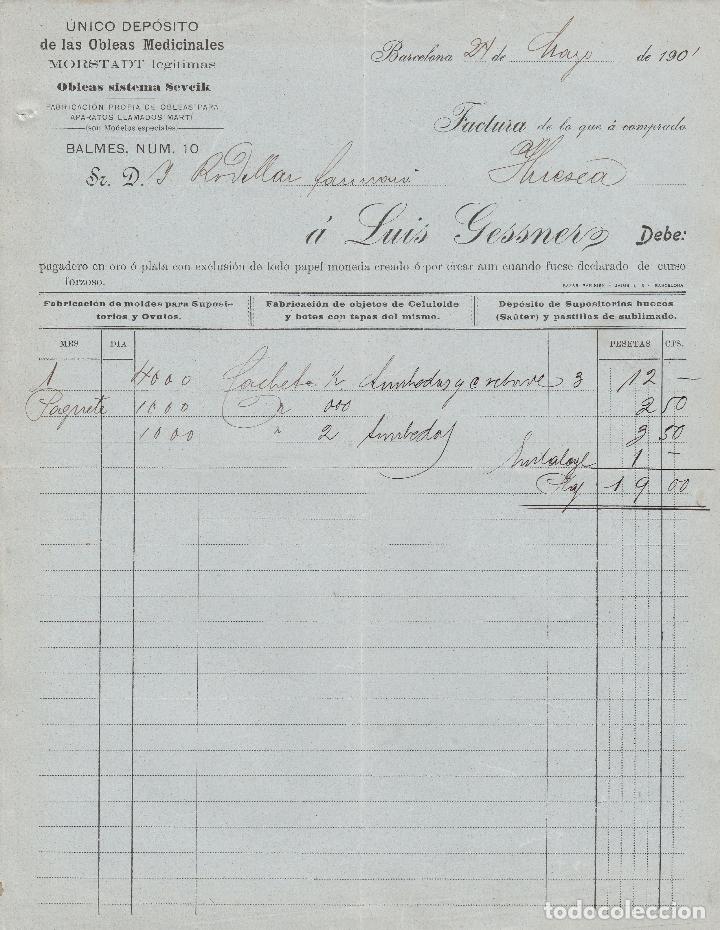 ÚNICO DEPÓSITO
de las Obleas Medicinales
MORSTADT legítimas
Obleas sistema Sevcik
FABRICACIÓN PROPIA DE OBLEAS PARA
APARATOS LLAMADOS MARTÍ
(son Modelos especiales)
BALMES, NUM. 10
Barcelona 24 de Mayo de 1901
Factura de lo que á comprado
Sr. D. J Rodellar Huesca
á Luis Gessner Debe:
pagadero en oro ó plata con exclusión de todo papel moneda creado ó por crear aun cuando fuese declarado de curso
forzoso.
Fabricación de moldes para Suposi-
torios y Óvulos.
Fabricación de objetos de Celuloide
y botes con tapas del mismo.
Depósito de Supositorios huecos
(Saüter) y pastillas de sublimado.
MES DIA PESETAS CTS.
1 4000 Cachets 3 12 —
Paquete 1000 " 000 2 50
1000 " 2 3 50
1 —
19 00
todocoleccion.net